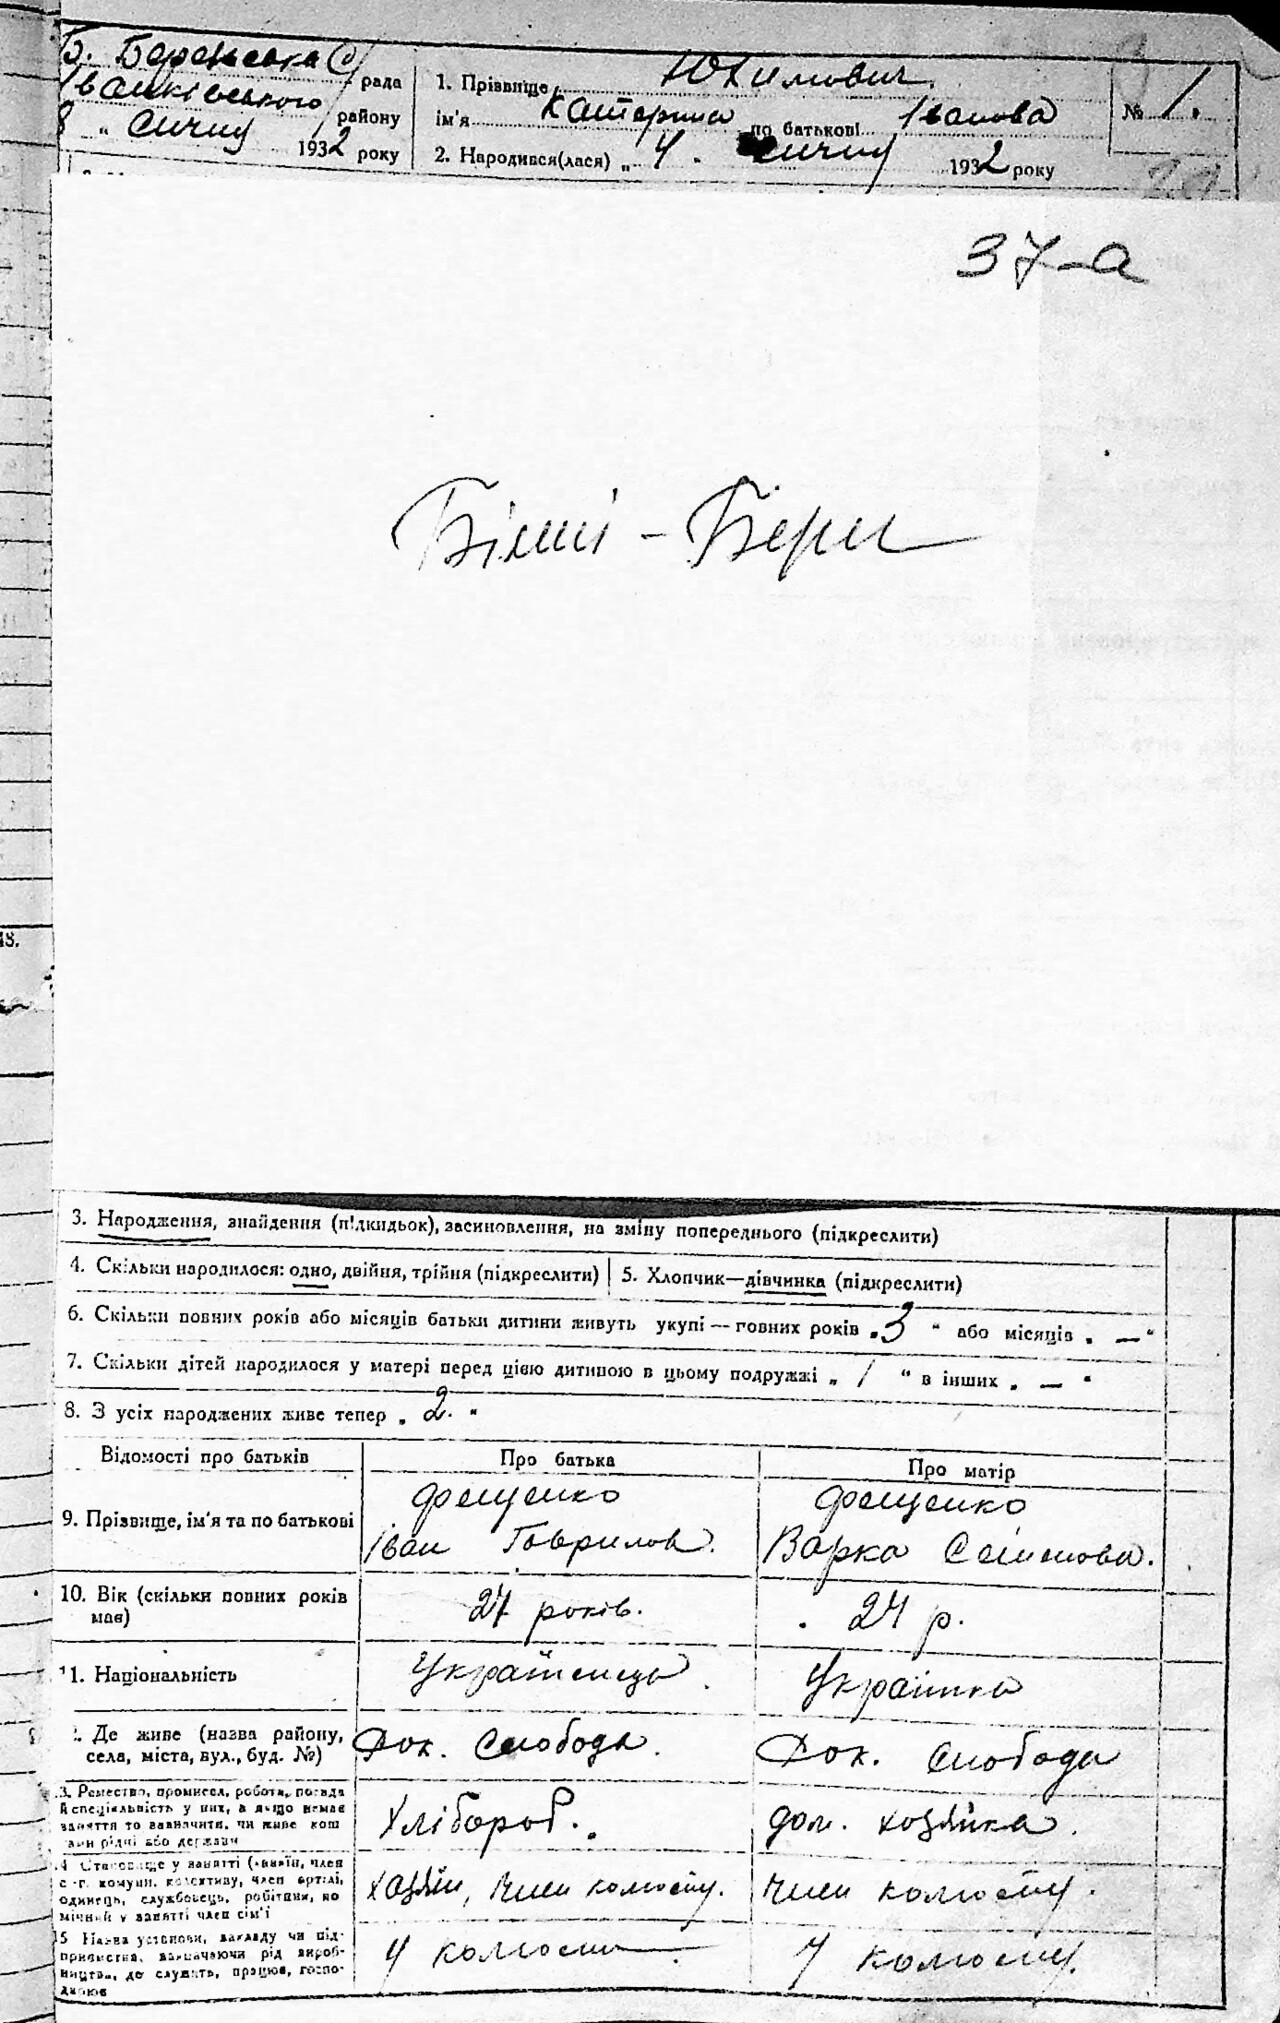 Б. Беренська С/рада
Іванківського району
8 „ січня 1932 року
1. Прізвище Юхимович
ім'я Катерина по батькові Іванова
2. Народився(лася) „ 4. січня 1932 року
№ 1.
37-а
Білші - Бери
3. Народження, знайдення (підкидьок), засиновлення, на зміну попереднього (підкреслити)
4. Скільки народилося: одно, двійня, трійня (підкреслити) 5. Хлопчик—дівчинка (підкреслити)
6. Скільки повних років або місяців батьки дитини живуть укупі — повних років „3 " або місяців „ — "
7. Скільки дітей народилося у матері перед цією дитиною в цьому подружжі „ 1 " в інших „ — "
8. З усіх народжених живе тепер „ 2. "
Відомості про батьків Про батька Про матір
9. Прізвище, ім'я та по батькові
Фещенко
Іван Гаврилов.
Фещенко
Варка Семенова.
10. Вік (скільки повних років має)
27 років.
24 р.
11. Національність
Українець
Українка
Де живе (назва району,
села, міста, вул., буд. №)
Слобода.
Слобода
3. Ремество, промисел, робота, посада
й спеціяльність у них, а якщо немає
заняття то зазначити, чи живе кош
тами рідні або держави
Хлібороб.
дом. хозяйка.
4 Становище у занятті (хазяїн, член
с.-г. комуни, колективу, член артілі,
одинець, службовець, робітник, по
мічний у занятті член сім'ї
хазяїн, член колгоспу.
член колгоспу.
15 Назва установи, закладу чи під-
приємства, зазначаючи рід вироб-
ництва, де служить, працює, госпо-
дарює
У колгоспі
У колгоспу.